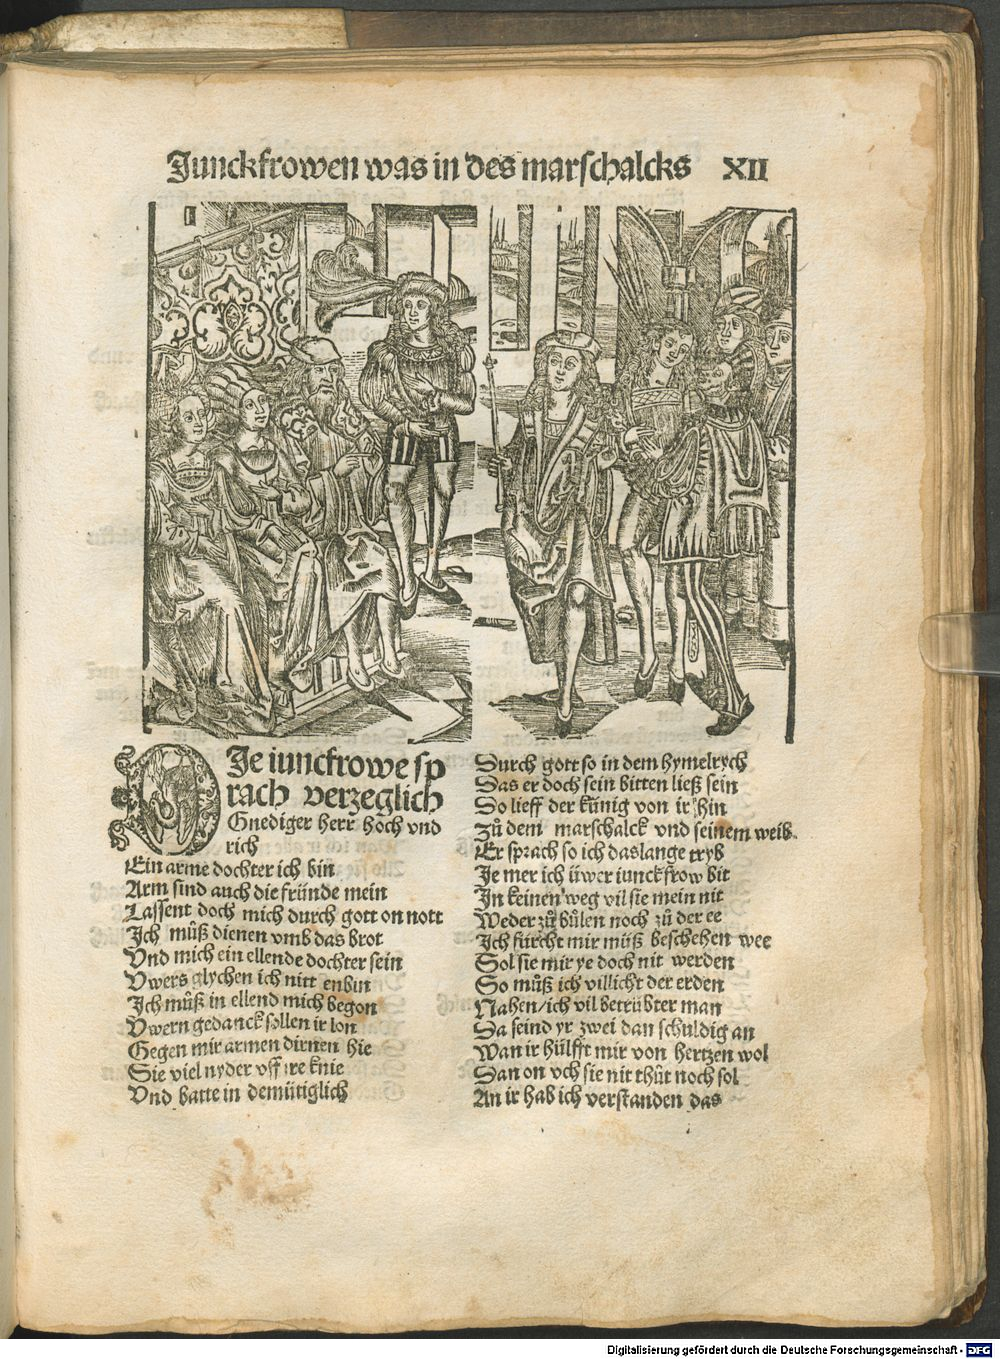 Junckfrowen was in des marschalcks XII
DJe iunckfrowe sp
rach verzeglich
Gnediger herr hoch vnd
rich
Ein arme dochter ich bin
Arm sind auch die fründe mein
Lassent doch mich durch gott on nott
Ich můß dienen vmb das brot
Vnd mich ein ellende dochter sein
Vwers glychen ich nitt enbin
Ich můß in ellend mich begon
Vwern gedanck sollen ir lon
Gegen mir armen dirnen hie
Sie viel nyder vff ire knie
Vnd batte in demütiglich
Durch gott so in dem hymelrych
Das er doch sein bitten ließ sein
So lieff der künig von ir hin
Zů dem marschalck vnd seinem weib
Er sprach so ich das lange tryb
Je mer ich üwer iunckfrow bit
In keinen weg vil sie mein nit
Weder zů bůlen noch zů der ee
Ich fürcht mir müß beschehen wee
Sol sie mir ye doch nit werden
So můß ich villicht der erden
Nahen/ich vil betrübter man
Da seind yr zwei dan schuldig an
Wan ir hülfft mir von hertzen wol
Dan on vch sie nit thůt noch sol
An ir hab ich verstanden das
Digitalisierung gefördert durch die Deutsche Forschungsgemeinschaft - DFG